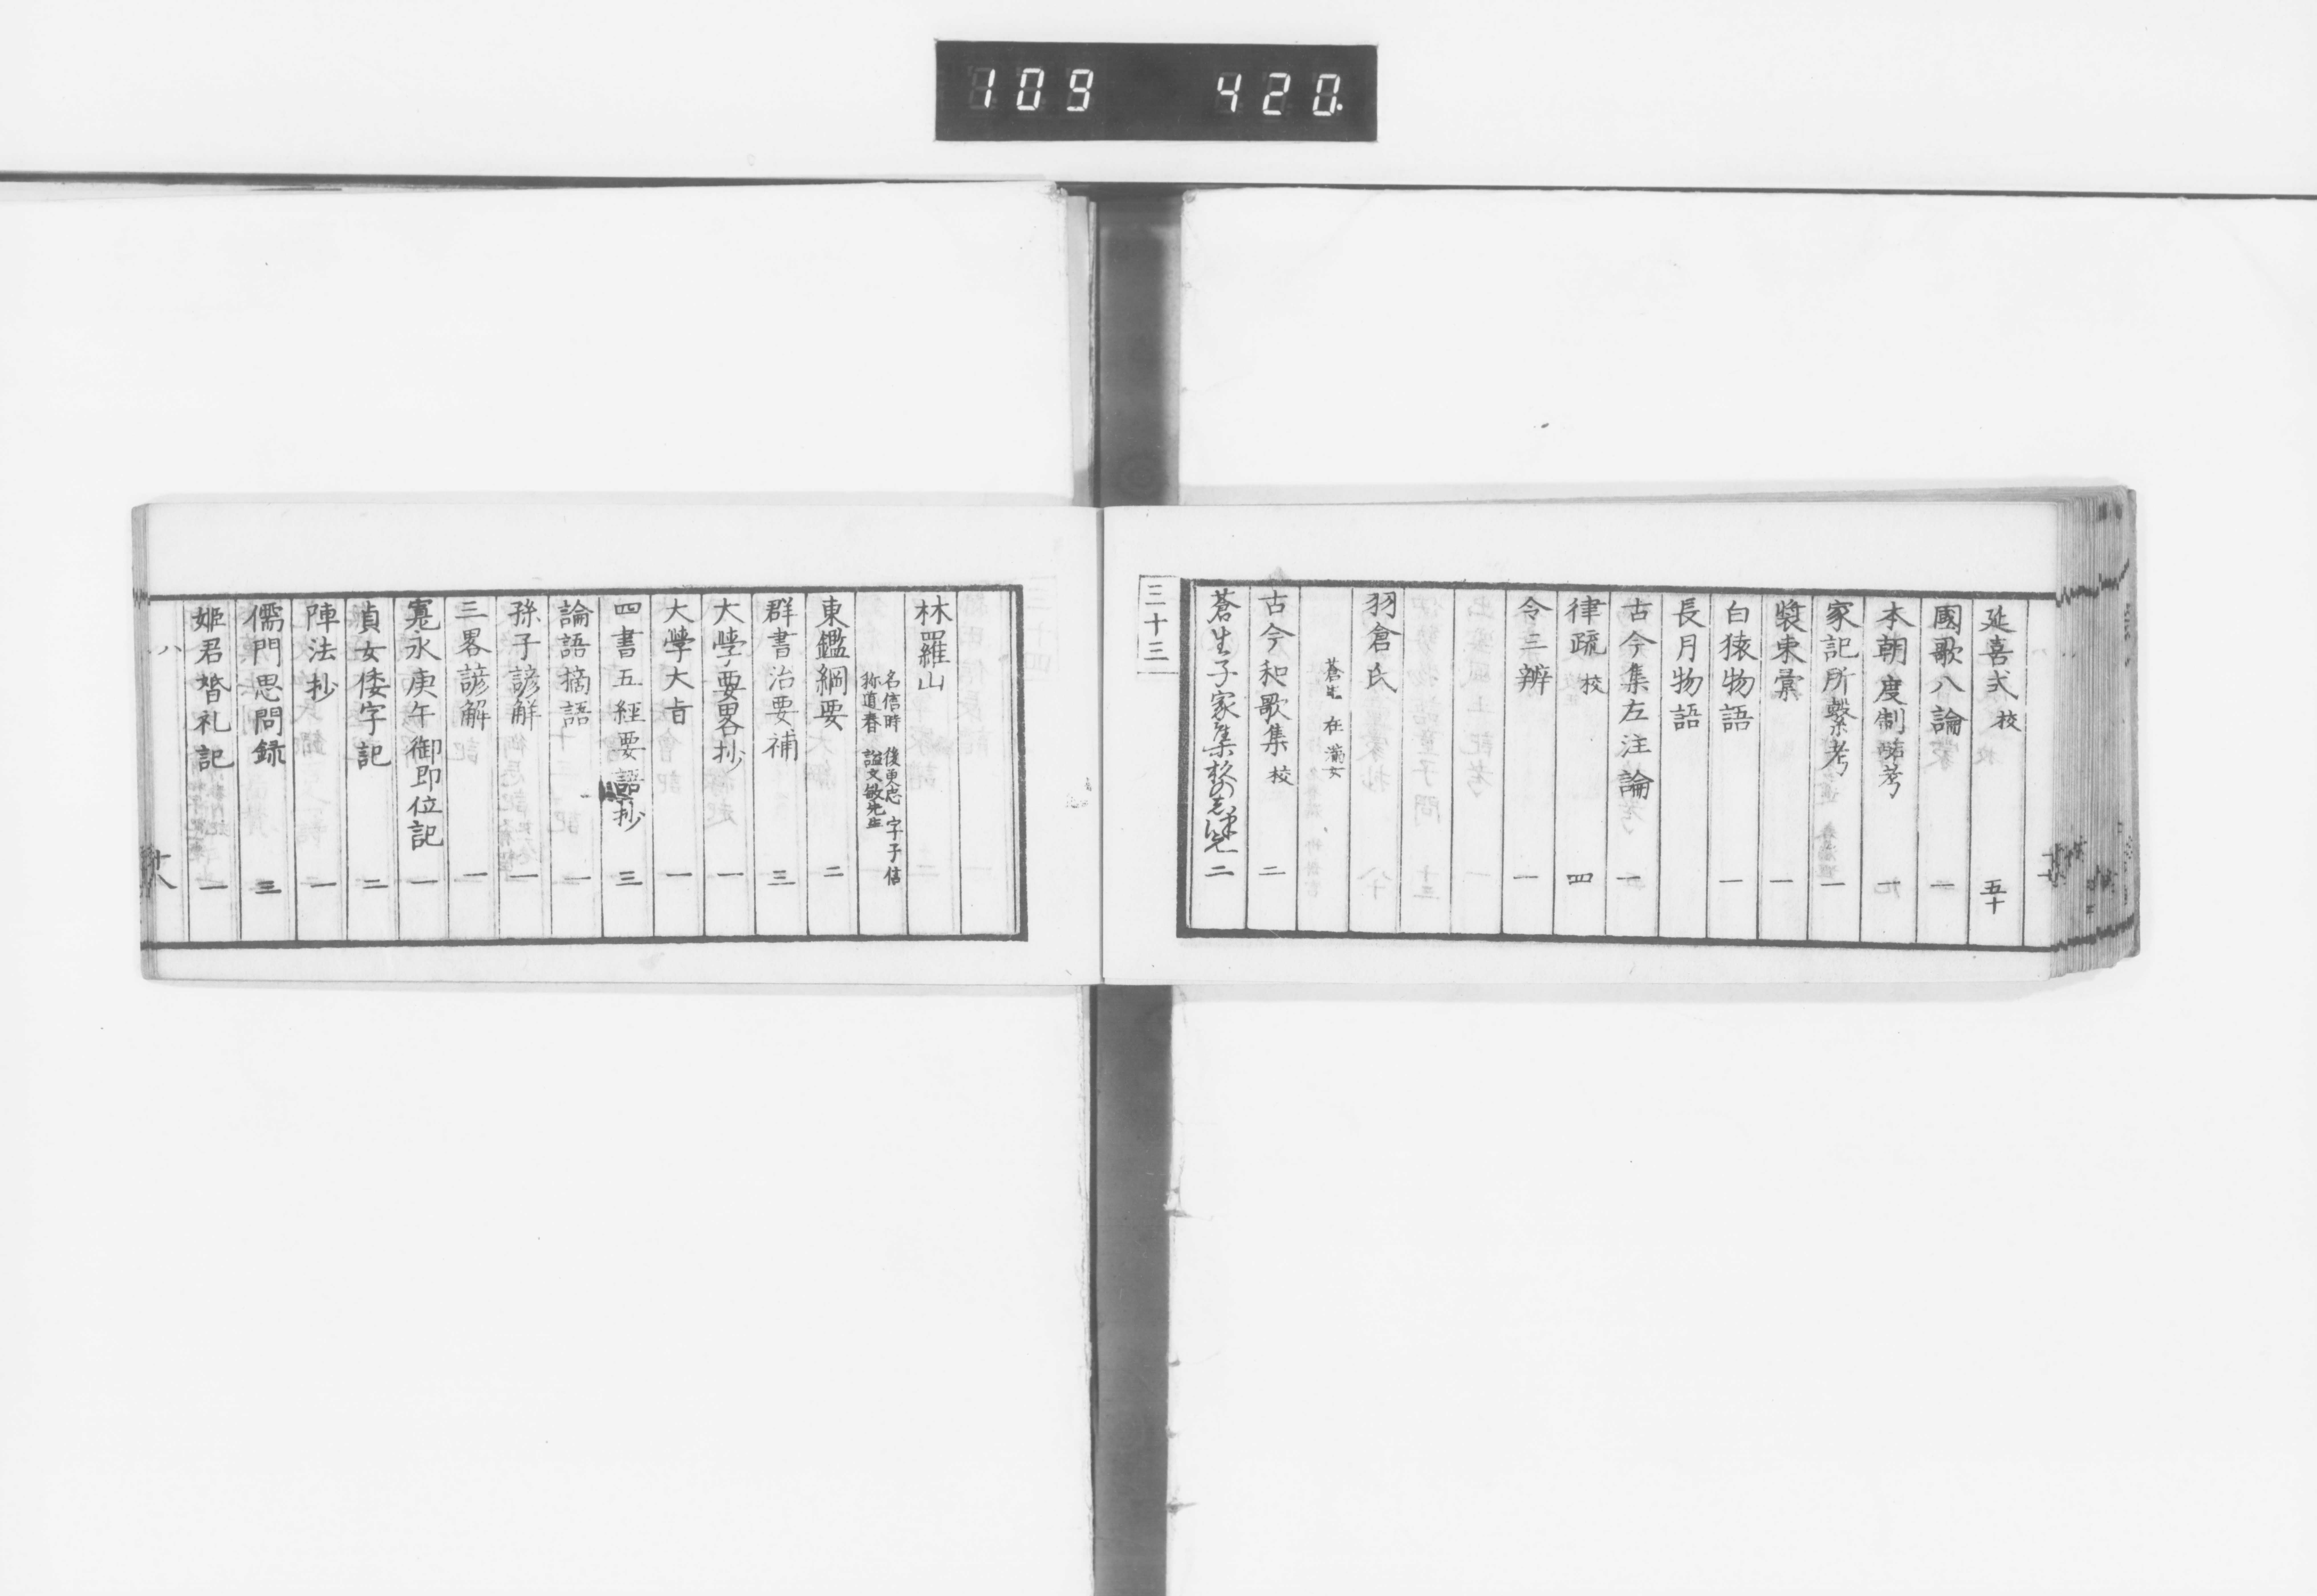 109 420
延喜式 校 五十
國歌八論 一
本朝度制略考 一
家記所繋考 一
装束彙 一
白猿物語 一
長月物語
古今集左注論 一
律疏 校 四
令三辨 一
羽倉氏
蒼生 在満女
古今和歌集 校 二
蒼生子家集 二
三十三
林羅山
名信時 後更忠 字子信
称道春 謚文敏先生
東鑑綱要 二
群書治要補 三
大學要畧抄 一
大學大旨 一
四書五經要語抄 三
論語摘語 一
孫子諺解 一
三畧諺解 一
寛永庚午御即位記 一
貞女倭字記 二
陣法抄 一
儒門思問録 三
姫君婚礼記 一
八
十八